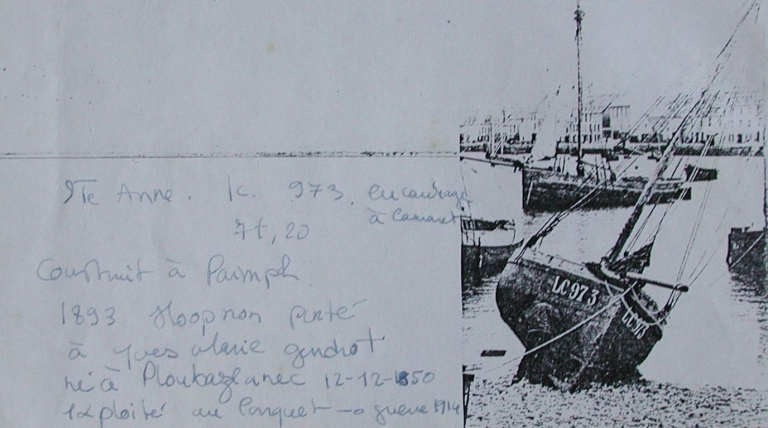 Ste Anne. lc. 973. en carénage
à Camaret
7t, 20
Construit à Paimpol
1893 sloop non ponté
à Yves Marie
né à Ploubazlanec 12-12-1850
Exploité au Conquet → guerre 1914
LC973
LC973